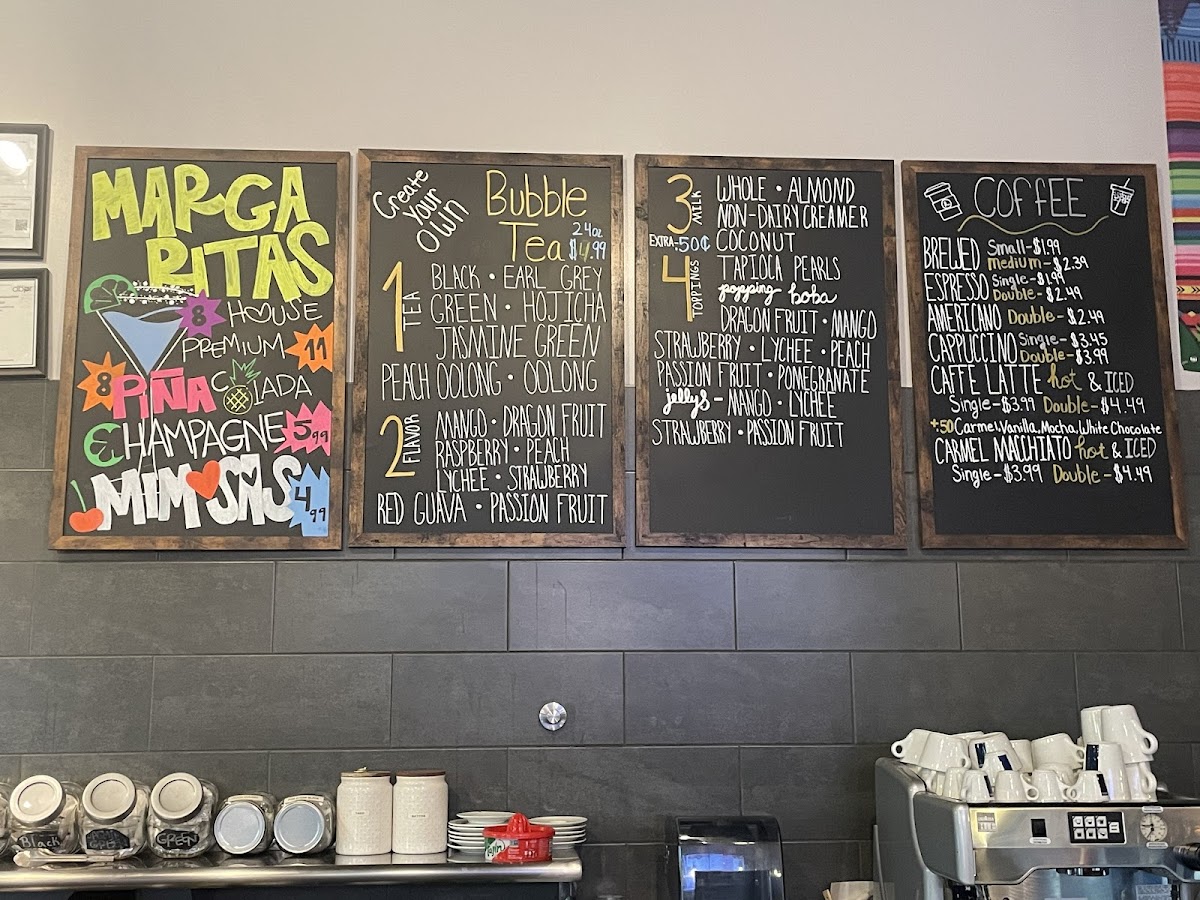 MARGA
RITAS
8 HOUSE
PREMIUM 11
8 PIÑA COLADA
CHAMPAGNE 5.99
MIMOSAS 4.99
Create Your Own
Bubble
Tea
24oz
$4.99
1 TEA
BLACK • EARL GREY
GREEN • HOJICHA
JASMINE GREEN
PEACH OOLONG • OOLONG
2 FLAVOR
MANGO • DRAGON FRUIT
RASPBERRY • PEACH
LYCHEE • STRAWBERRY
RED GUAVA • PASSION FRUIT
3 MILK
WHOLE • ALMOND
NON-DAIRY CREAMER
EXTRA .50¢ COCONUT
4 TOPPINGS
TAPIOCA PEARLS
popping boba
DRAGON FRUIT • MANGO
STRAWBERRY • LYCHEE • PEACH
PASSION FRUIT • POMEGRANATE
jellys - MANGO • LYCHEE
STRAWBERRY • PASSION FRUIT
COFFEE
BREWED Small-$1.99
medium-$2.39
ESPRESSO Single-$1.99
Double-$2.49
AMERICANO Double-$2.49
CAPPUCCINO Single-$3.45
Double-$3.99
CAFFE LATTE hot & ICED
Single-$3.99 Double-$4.49
+.50 Carmel, Vanilla, Mocha, White Chocolate
CARMEL MACCHIATO hot & ICED
Single-$3.99 Double-$4.49
Black
GREEN
Tajín